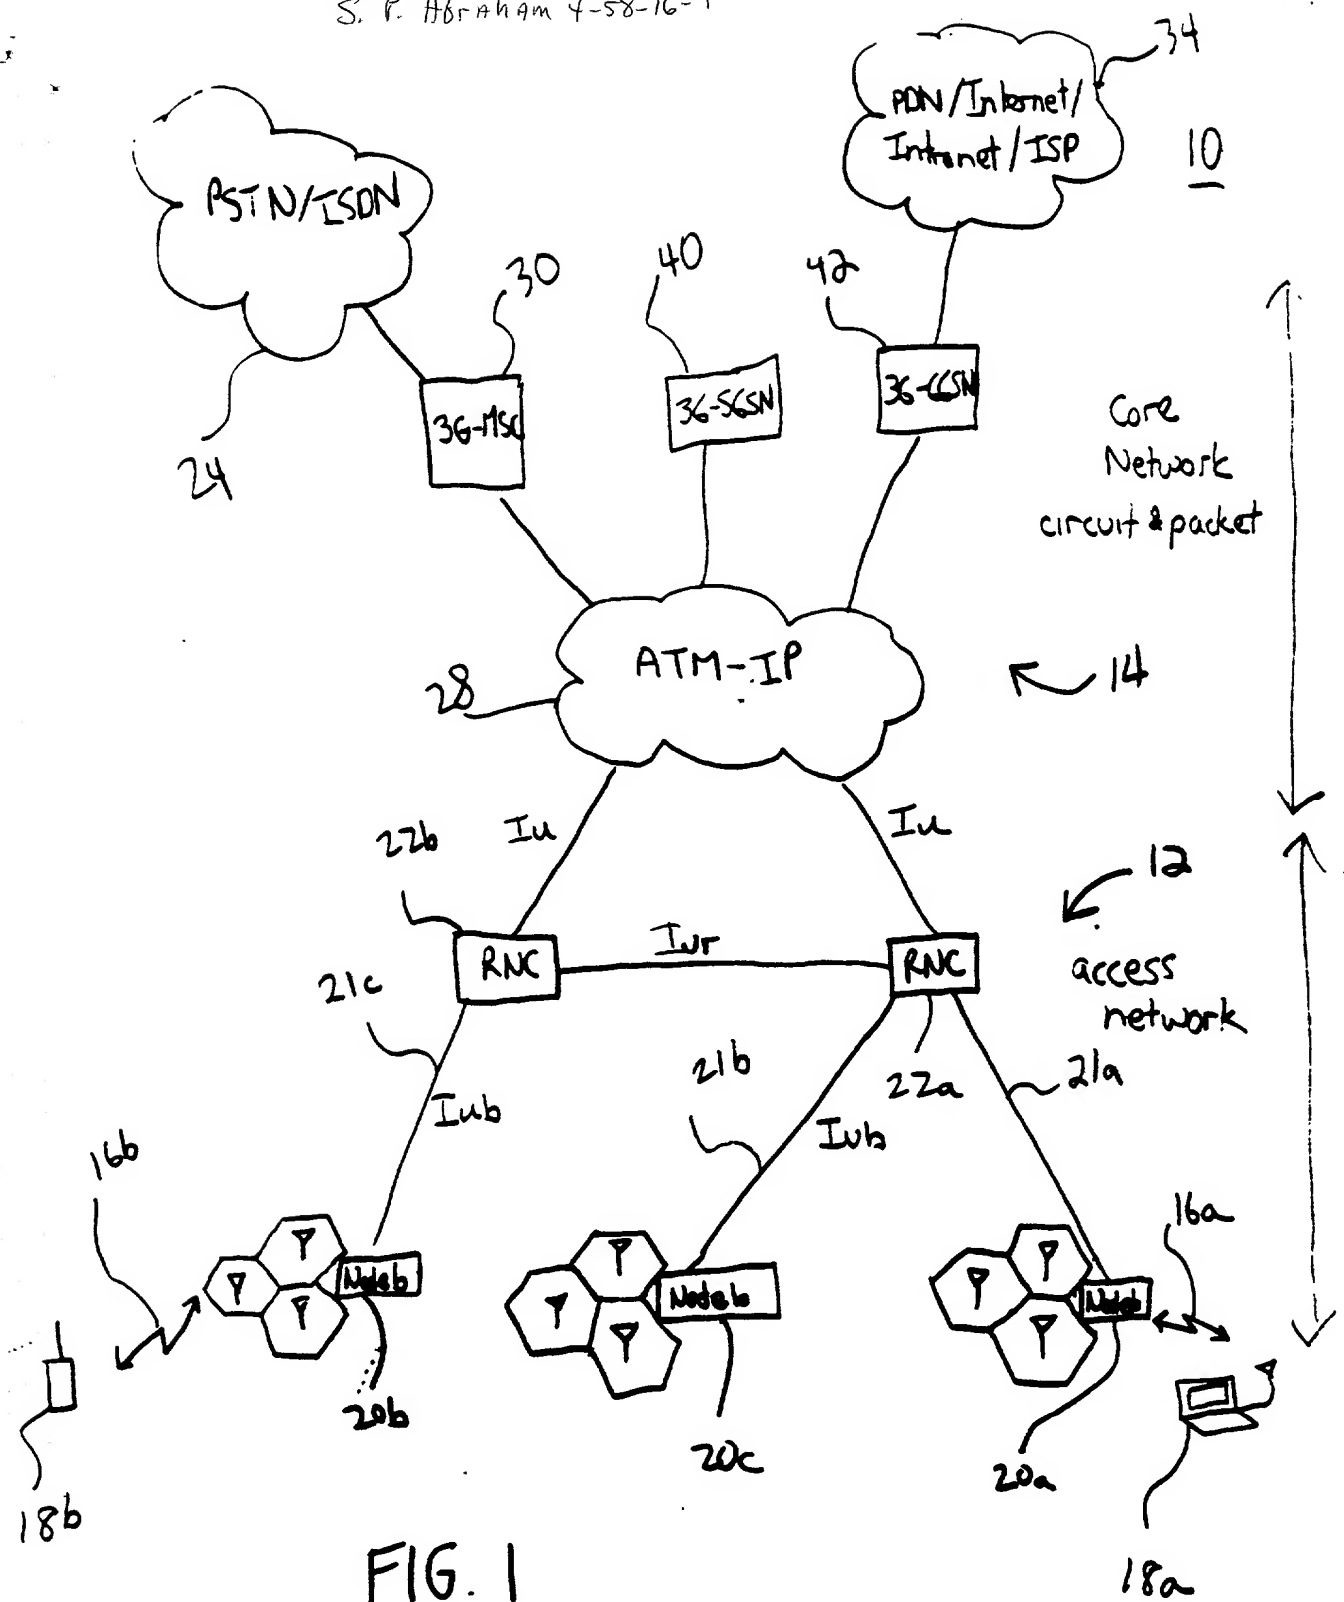 S. P. Abraham 4-58-16-1
34
PDN/Internet/
Intranet/ISP
10
PSTN/ISDN
30
40
42
3G-MSC
3G-SGSN
3G-GGSN
24
Core
Network
circuit & packet
ATM-IP
28
14
Iu
Iu
22b
12
RNC
Iur
RNC
access
network
21c
21b
22a
21a
Iub
Iub
16b
16a
Node b
Node b
Node b
20b
20c
20a
18b
18a
FIG. 1